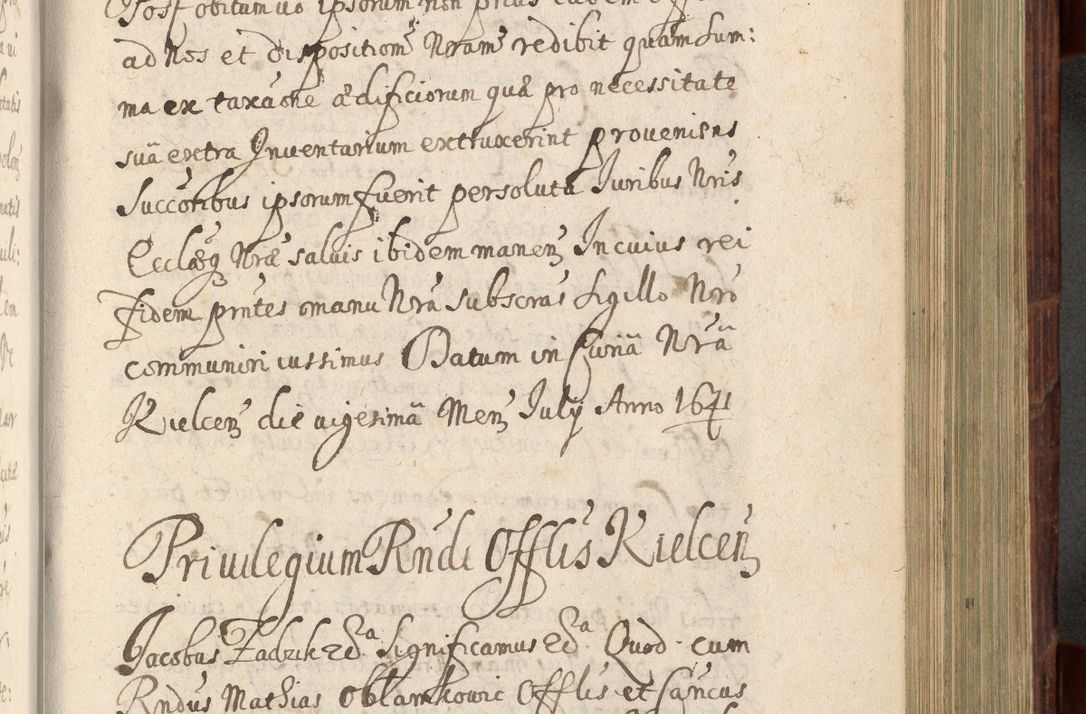 Post obitum vero ipsorum non prius eadem
ad Nos et dispositiom̃ Nram̃ redibit quam Sum:
ma ex taxãone ædificiorum quæ pro necessitate
suâ extra Inventarium extruxerint proveniens
Succõribus ipsorum fuerit persoluta Iuribus Nris
Ecclæq Nræ salvis ibidem manen̄ In cuius rei
Fidem pr̃ntes manu Nrã subscras Sigillo Nrõ
communiri iussimus Datum in Curiâ Nrã
Kielcen̄ die vigesimâ Men̄ Iulÿ Anno 1641
Privilegium Rndi Offlis Kielcen̄
Iacobus Zadzik &cᵃ. Significamus &cᵃ. Quod cum
Rndus Mathias Oblamkowic Offlis et Cancus